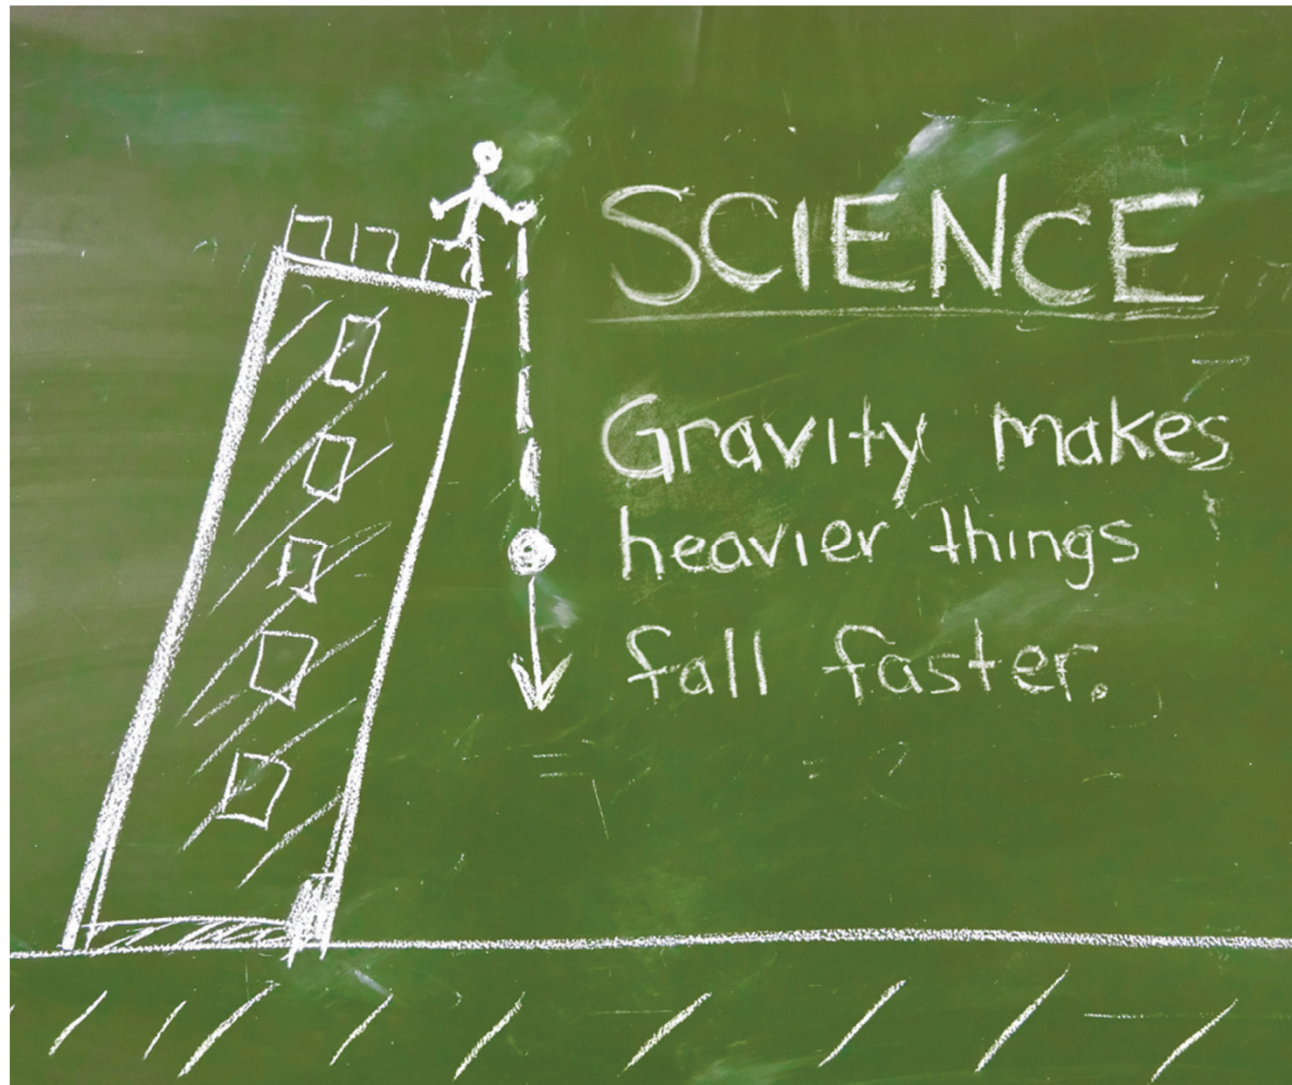 SCIENCE
Gravity makes
heavier things
fall faster.